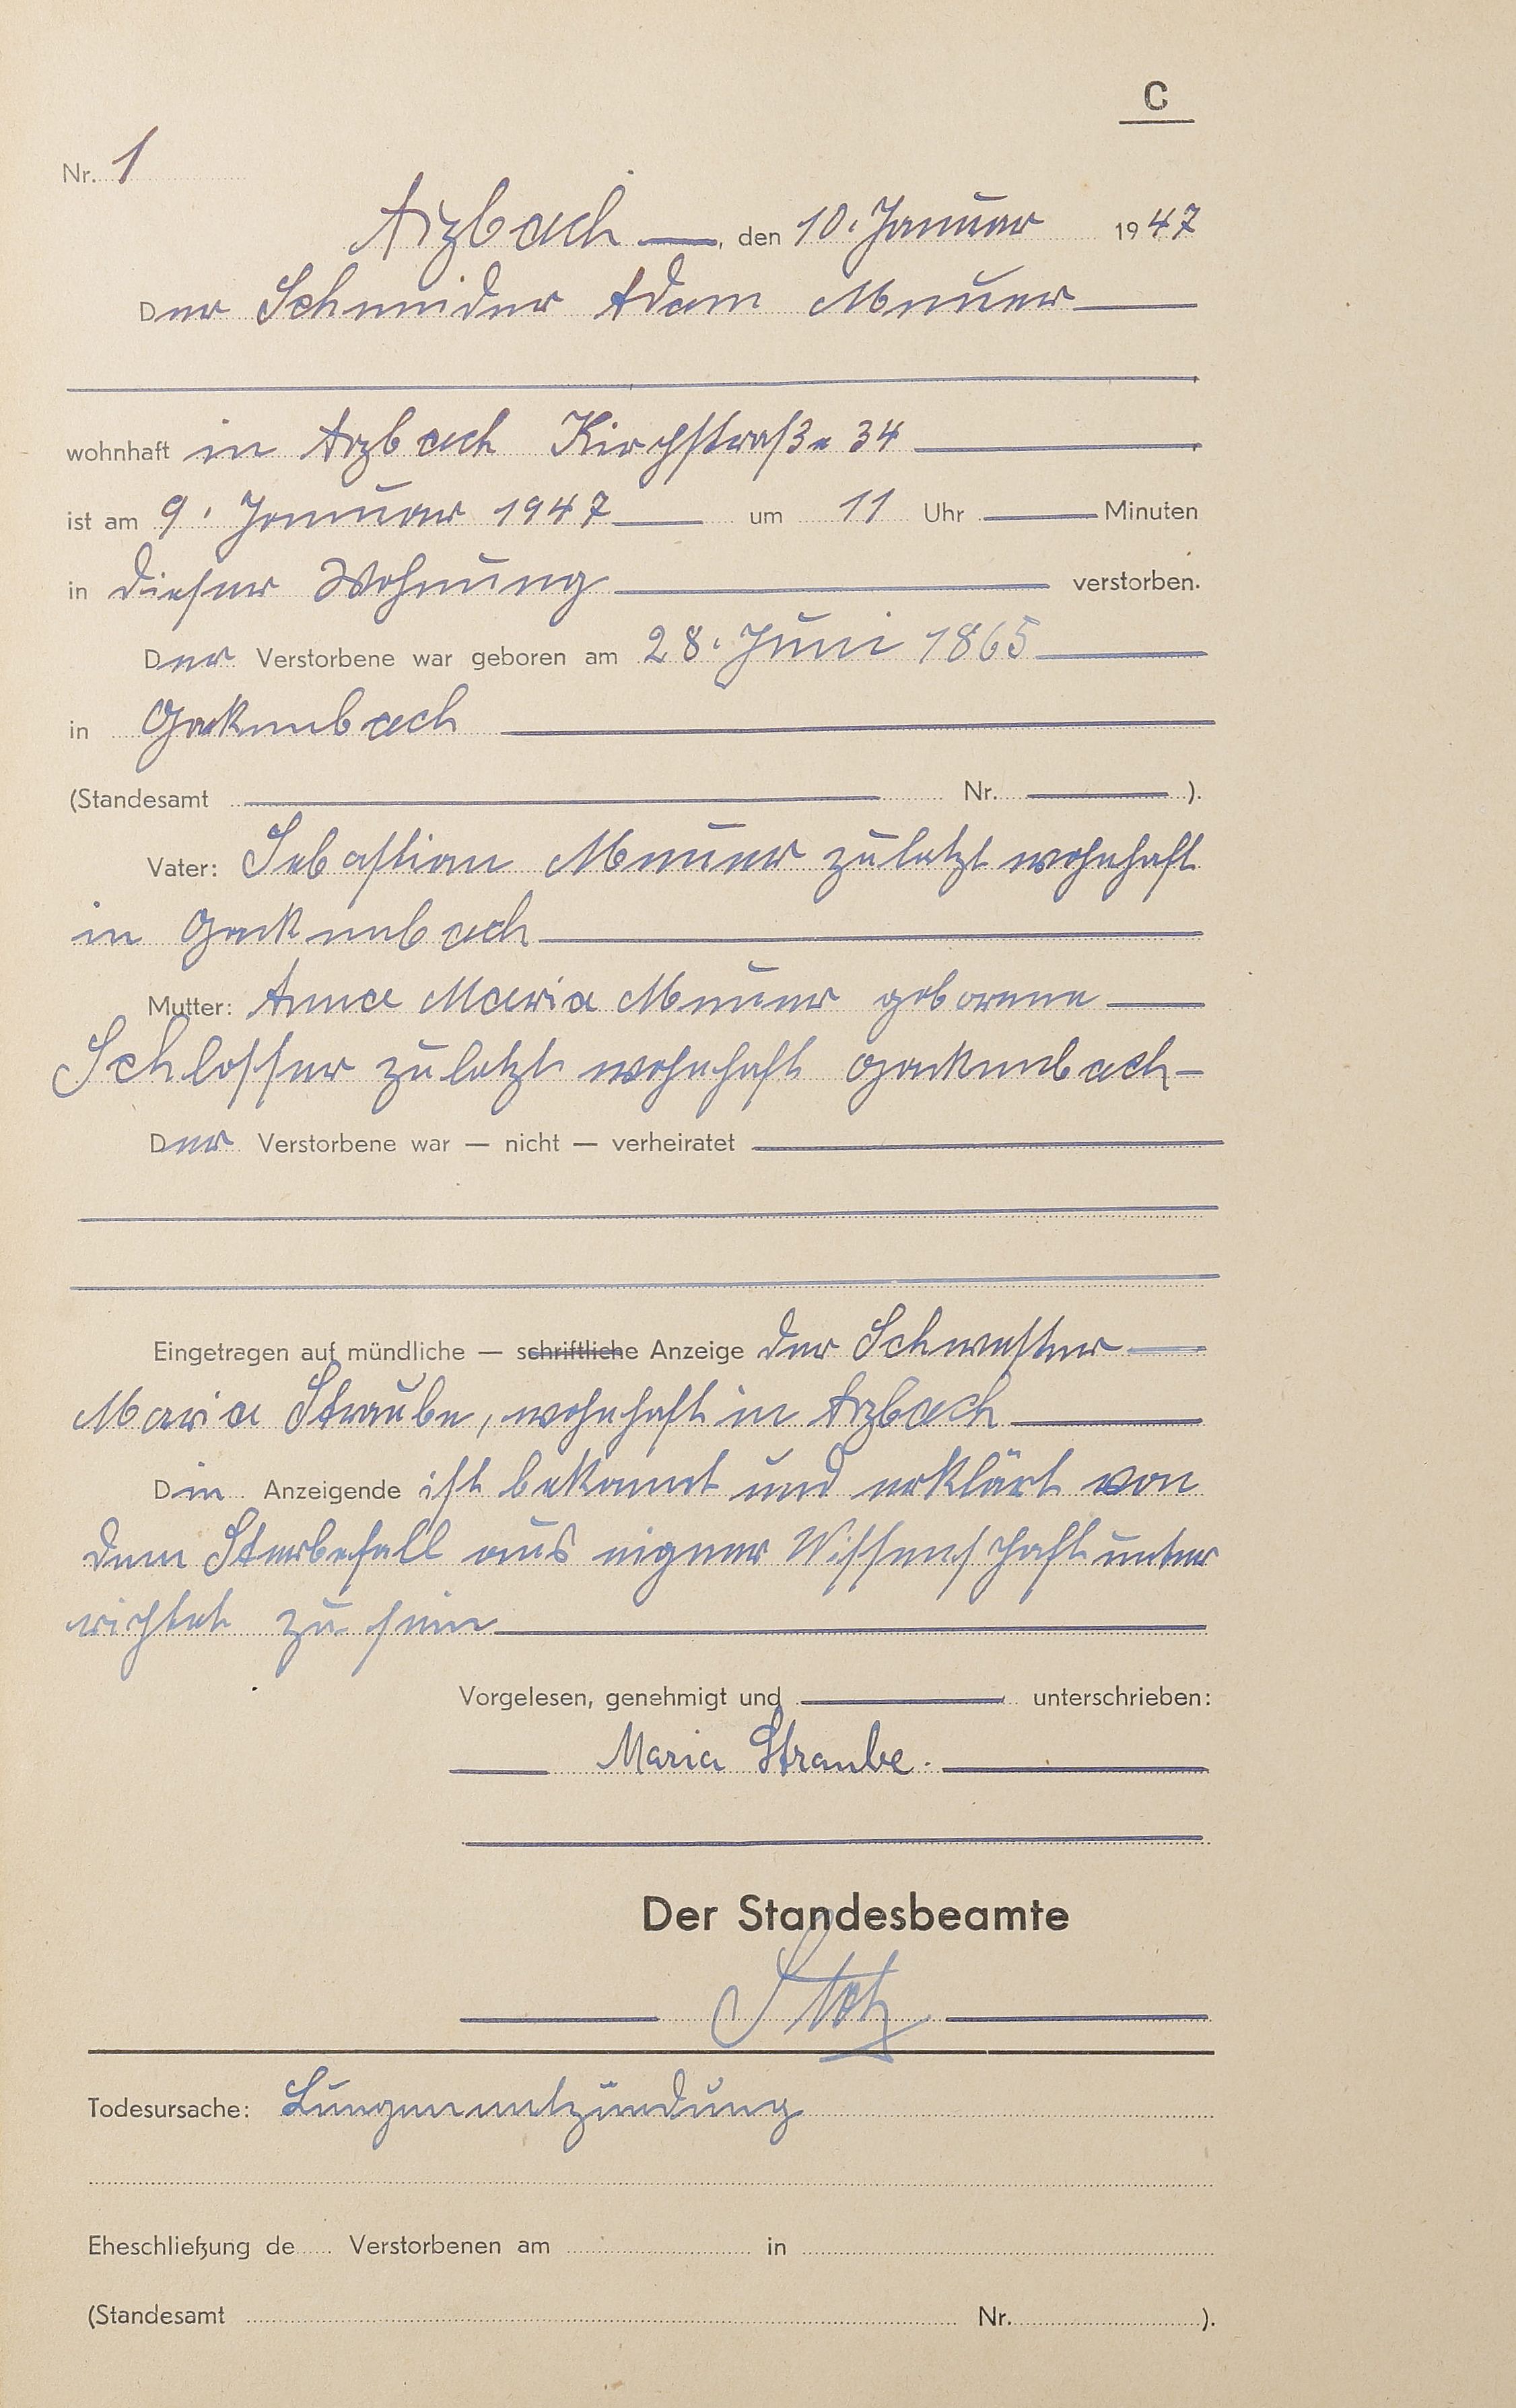 C
Nr. 1
Arzbach —, den 10. Januar 1947
Der Schneider Adam Meuer
wohnhaft in Arzbach Kirchstraße 34
ist am 9. Januar 1947 um 11 Uhr — Minuten
in dieser Wohnung verstorben.
Der Verstorbene war geboren am 28. Juni 1865
in Gackenbach
(Standesamt — Nr. — ).
Vater: Sebastian Meuer zuletzt wohnhaft
in Gackenbach
Mutter: Anna Maria Meuer geborene —
Schlosser zuletzt wohnhaft Gackenbach —
Der Verstorbene war — nicht — verheiratet
Eingetragen auf mündliche — schriftliche Anzeige der Schwester —
Maria Straube, wohnhaft in Arzbach
Die Anzeigende ist bekannt und erklärt von
dem Sterbefall aus eigner Wissenschaft unter
richtet zu sein
Vorgelesen, genehmigt und — unterschrieben:
Maria Straube.
Der Standesbeamte
Stotz
Todesursache: Lungenentzündung
Eheschließung de..... Verstorbenen am ..... in .....
(Standesamt ..... Nr. ..... ).